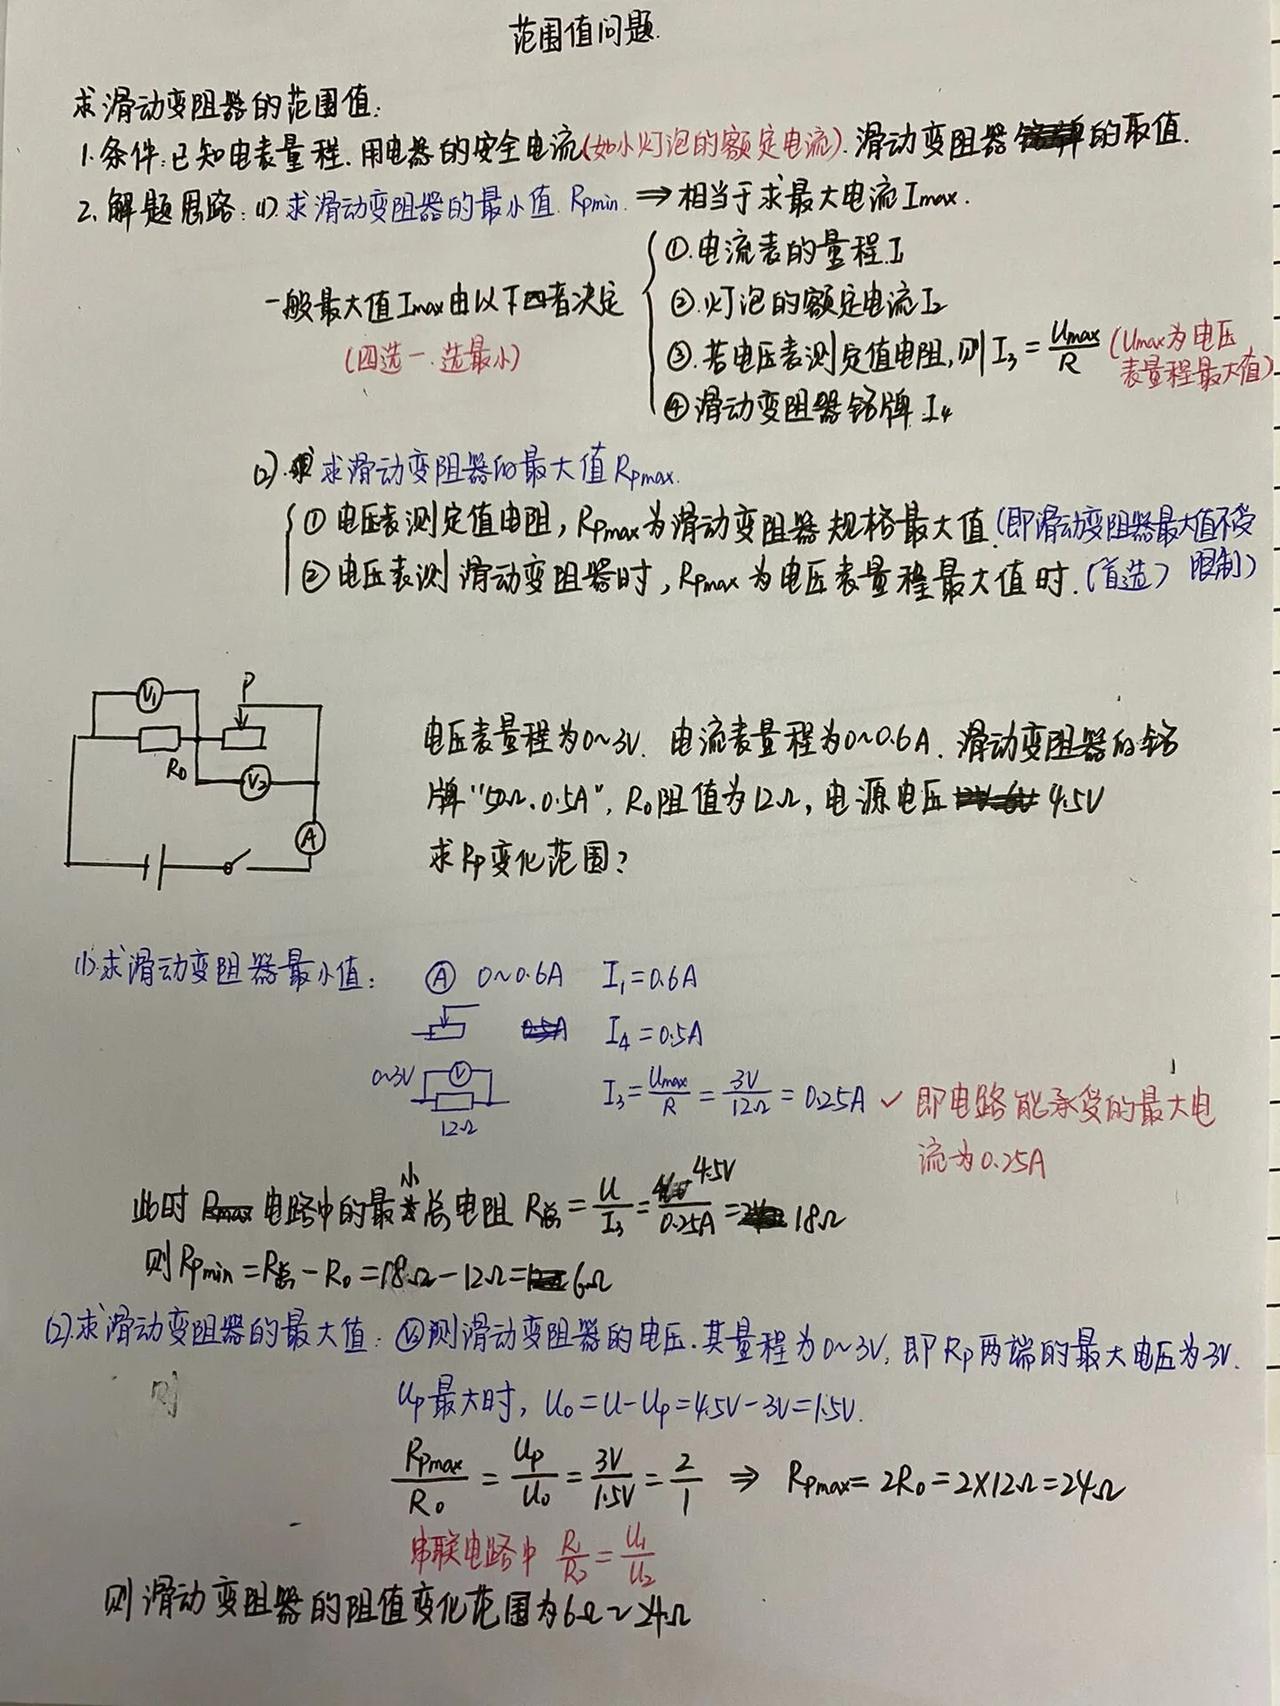 范围值问题.
求滑动变阻器的范围值:
1.条件:已知电表量程.用电器的安全电流(如小灯泡的额定电流).滑动变阻器的取值.
2.解题思路:(1).求滑动变阻器的最小值.Rpmin.⇒相当于求最大电流Imax.
一般最大值Imax由以下四者决定
(四选一.选最小)
①.电流表的量程I₁
②.灯泡的额定电流I₂
③.若电压表测定值电阻,则I₃=Umax/R(Umax为电压
表量程最大值)
④滑动变阻器铭牌I₄
(2).求滑动变阻器的最大值Rpmax.
①电压表测定值电阻,Rpmax为滑动变阻器规格最大值.(即滑动变阻器最大值不受
限制)
②电压表测滑动变阻器时,Rpmax为电压表量程最大值时.(首选)
V₁
P
R₀
V₂
A
电压表量程为0~3V.电流表量程为0~0.6A.滑动变阻器的铭
牌"50Ω.0.5A",R₀阻值为12Ω,电源电压4.5V
求Rp变化范围?
(1)求滑动变阻器最小值: Ⓐ 0~0.6A I₁=0.6A
I₄=0.5A
0~3V V 12Ω I₃=Umax/R=3V/12Ω=0.25A✓即电路能承受的最大电
流为0.25A
此时电路中的最小总电阻R总=U/I₃=4.5V/0.25A=18Ω
则Rpmin=R总-R₀=18Ω-12Ω=6Ω
(2).求滑动变阻器的最大值:V₂测滑动变阻器的电压.其量程为0~3V,即Rp两端的最大电压为3V.
则
Up最大时,U₀=U-Up=4.5V-3V=1.5V.
Rpmax/R₀=Up/U₀=3V/1.5V=2/1⇒Rpmax=2R₀=2×12Ω=24Ω
串联电路中R₁/R₂=U₁/U₂
则滑动变阻器的阻值变化范围为6Ω~24Ω